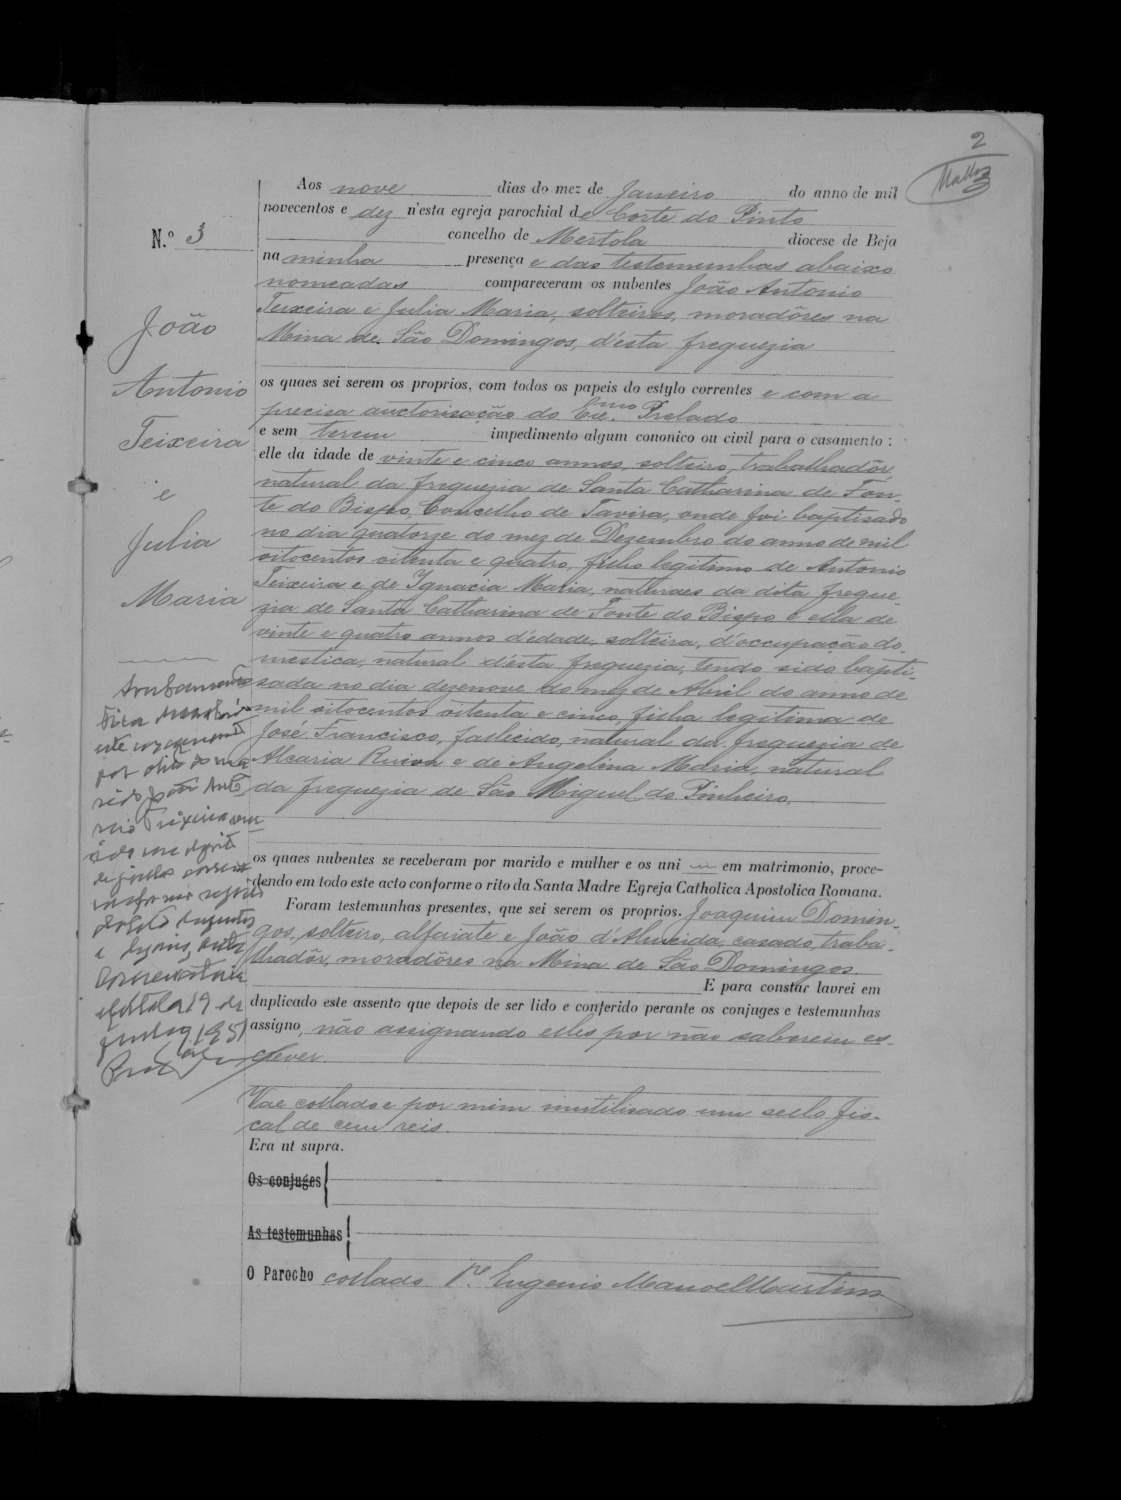 2
Mattos
Aos nove dias do mez de Janeiro do anno de mil
novecentos e dez n'esta egreja parochial de Corte do Pinto
concelho de Mertola diocese de Beja
na minha presença e das testemunhas abaixo
nomeadas compareceram os nubentes João Antonio
Teixeira e Julia Maria, solteiros, moradôres na
Mina de São Domingos, d'ésta freguezia
os quaes sei serem os proprios, com todos os papeis do estylo correntes e com a
precisa auctorisação do Prelado
e sem terem impedimento algum cononico ou civil para o casamento :
elle da idade de vinte e cinco annos, solteiro, trabalhadôr
natural da freguezia de Santa Catharina de Fon-
te do Bispo, Concelho de Tavira, onde foi baptisado
no dia quatorze do mez de Dezembro do anno de mil
oitocentos oitenta e quatro, filho legitimo de Antonio
Teixeira e de Ignacia Maria, naturaes da dita fregue-
zia de Santa Catharina de Fonte do Bispo e ella de
vinte e quatro annos d'edade, solteira, d'occupação do-
mestica, natural d'ésta freguezia, tendo sido bapti-
sada no dia dezenove do mez de Abril do anno de
mil oitocentos oitenta e cinco, filha legitima de
José Francisco, fallecido, natural da freguezia de
Alcaria Ruiva e de Angelina Maria, natural
da freguezia de São Miguel do Pinheiro.
os quaes nubentes se receberam por marido e mulher e os uni em matrimonio, proce-
dendo em todo este acto conforme o rito da Santa Madre Egreja Catholica Apostolica Romana.
Foram testemunhas presentes, que sei serem os proprios. Joaquim Domin-
gos, solteiro, alfaiate e João d'Almeida, casado, traba-
lhadôr, moradôres na Mina de São Domingos.
E para constar lavrei em
duplicado este assento que depois de ser lido e conferido perante os conjuges e testemunhas
assigno, não assignando elles por não saberem es-
crever.
Vae collado e por mim inutilisado um sello fis-
cal de cem reis.
Era ut supra.
Os conjuges
As testemunhas
O Parocho collado P.e Eugenio Manoel Martins
N.o 3
João
Antonio
Teixeira
e
Julia
Maria
Averbamento
Fica
este casamento
por obito do ma
rido João Antó
nio Teixeira
Conservatória
Mertola 19 de
1951